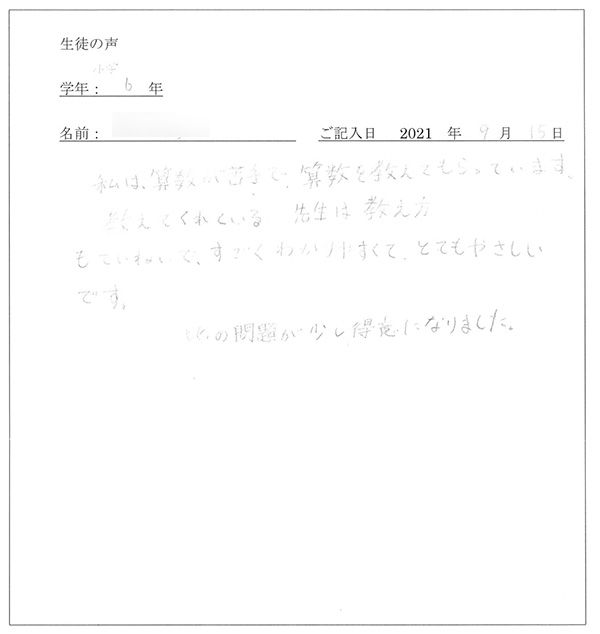 生徒の声
小学
学年： 6 年
名前：
ご記入日 2021 年 9 月 15 日
私は、算数が苦手で、算数を教えてもらっています。
教えてくれている 先生は 教え方
もていねいで、すごくわかりやすくて、とてもやさしい
です。
比の問題が少し得意になりました。